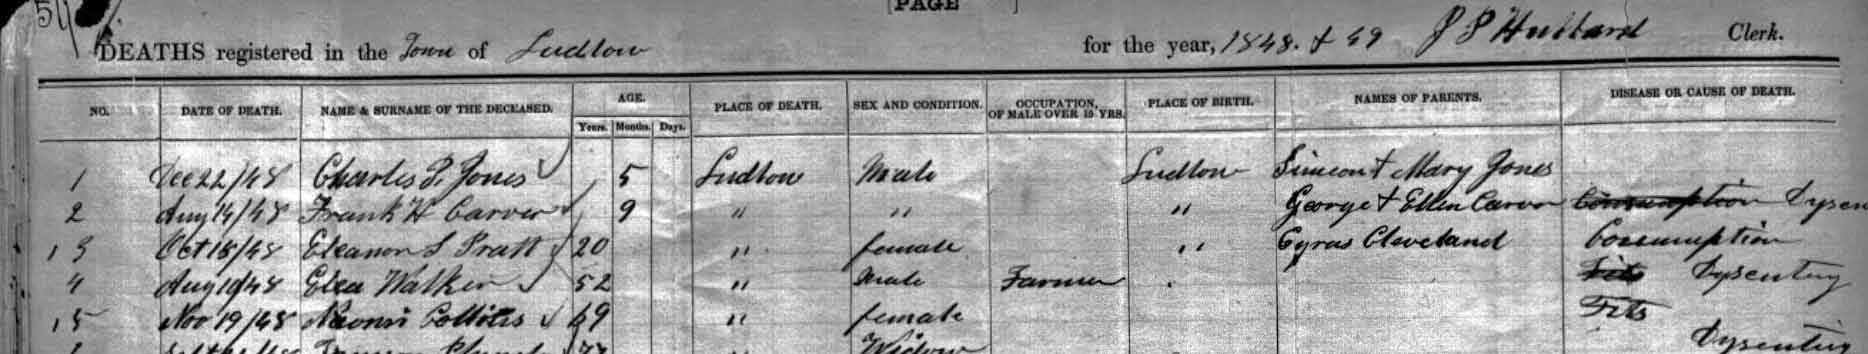 [PAGE ]
DEATHS registered in the Town of Ludlow for the year, 1848. & 49 J P Hubbard Clerk.
NO. DATE OF DEATH. NAME & SURNAME OF THE DECEASED. AGE. Years. Months. Days. PLACE OF DEATH. SEX AND CONDITION. OCCUPATION, OF MALE OVER 15 YRS. PLACE OF BIRTH. NAMES OF PARENTS. DISEASE OR CAUSE OF DEATH.
1 Dec 22/48 Charles Jones 5 Ludlow Male Ludlow Simeon & Mary Jones
2 Aug 14/48 Frank H Carver 9 " " " George & Ellen Carver Consumption
3 Oct 18/48 Eleanor S Pratt 20 " female " Cyrus Cleveland Consumption
4 Aug 48 Walker 52 " Male Farmer Fits Dysentery
5 Nov 19/48 Naomi 69 " female Fits
Widow Dysentery